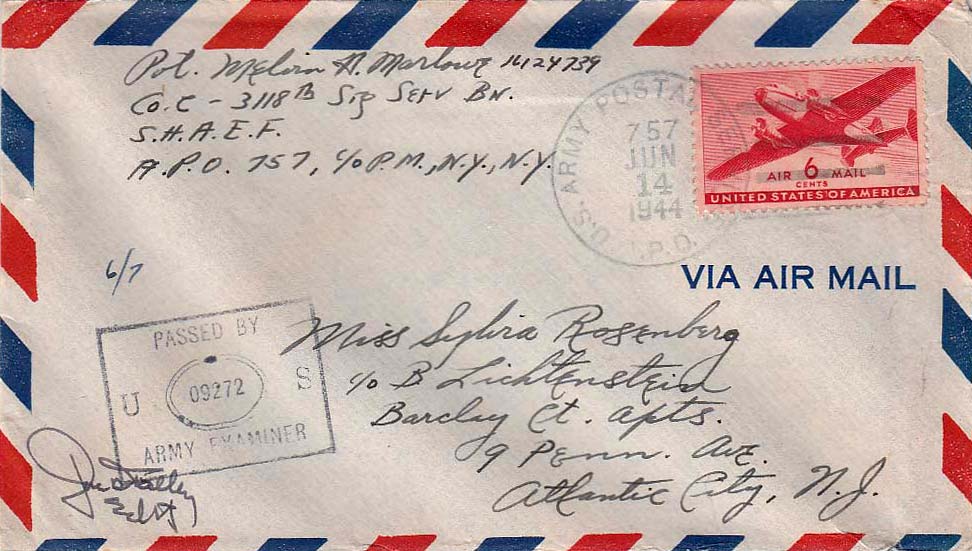 Pvt. Melvin H. Marlowe 16124739
Co. C - 3118th Sig Serv Bn.
S.H.A.E.F.
A.P.O. 757, c/o P.M., N.Y., N.Y.
U.S. ARMY POSTAL
757
JUN
14
1944
A.P.O.
AIR 6 MAIL
CENTS
UNITED STATES OF AMERICA
VIA AIR MAIL
6/7
PASSED BY
U 09272 S
ARMY EXAMINER
Miss Sylvia Rosenberg
c/o B Lichtenstein
Barclay Ct. Apts.
9 Penn. Ave.
Atlantic City, N.J.